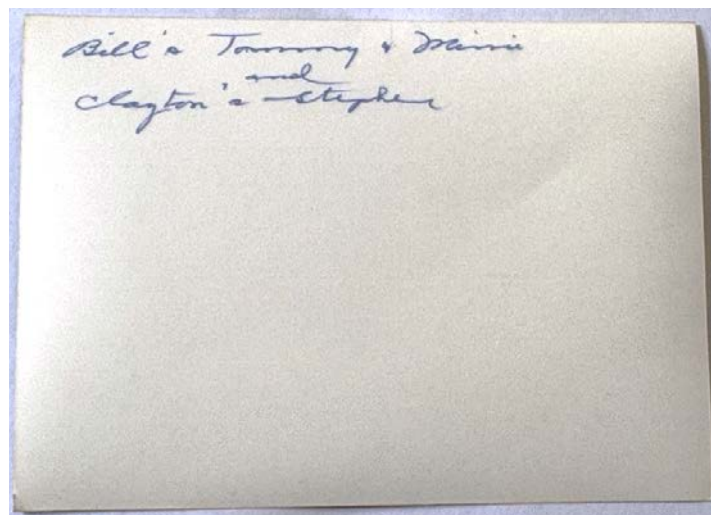 Bill's Tommy & Minnie
and
Clayton's Stephen